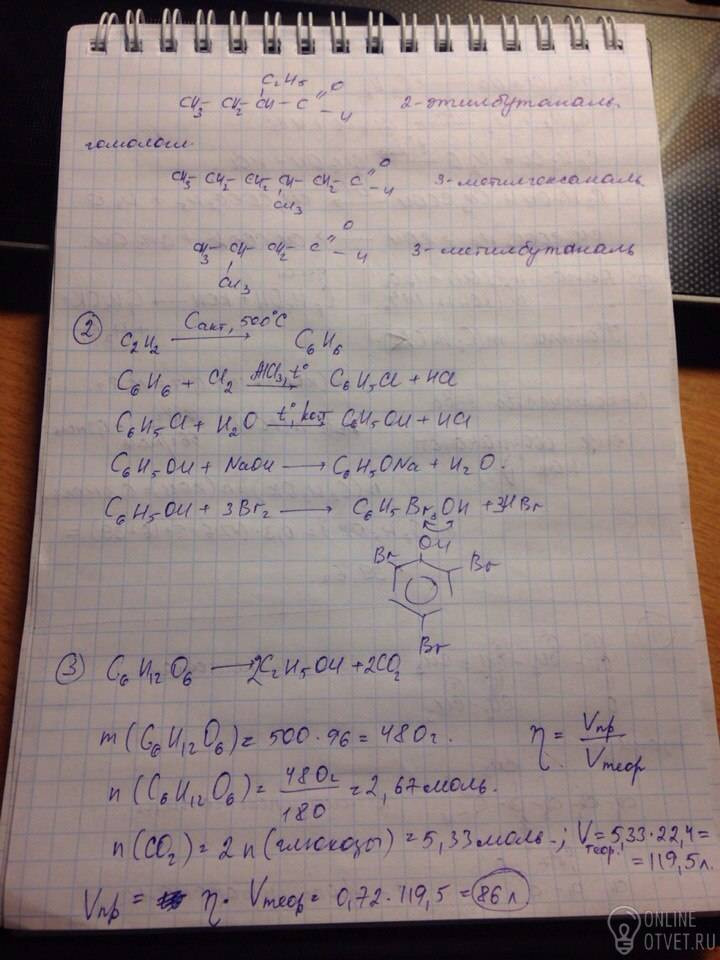 C2H5
CH3 – CH2 – CH – C =O –H 2-этилбутаналь
гомологи.
CH3 – CH2 – CH2 – CH – CH2 – C =O –H 3-метилгексаналь
CH3
CH3 – CH – CH2 – C =O –H 3-метилбутаналь
CH3
② C2H2 Cакт, 500°C → C6H6
C6H6 + Cl2 AlCl3, t° → C6H5Cl + HCl
C6H5Cl + H2O t°, kat → C6H5OH + HCl
C6H5OH + NaOH → C6H5ONa + H2O.
C6H5OH + 3Br2 → C6H5Br3OH + 3HBr
OH
Br Br
Br
③ C6H12O6 → 2C2H5OH + 2CO2
m(C6H12O6) = 500 · 96 = 480г. η = Vпр / Vтеор
n(C6H12O6) = 480г / 180 = 2,67моль.
n(CO2) = 2n(глюкозы) = 5,33моль.; Vтеор. = 5,33·22,4 =
= 119,5л.
Vпр = η · Vтеор = 0,72 · 119,5 = 86л
ONLINE
OTVET.RU